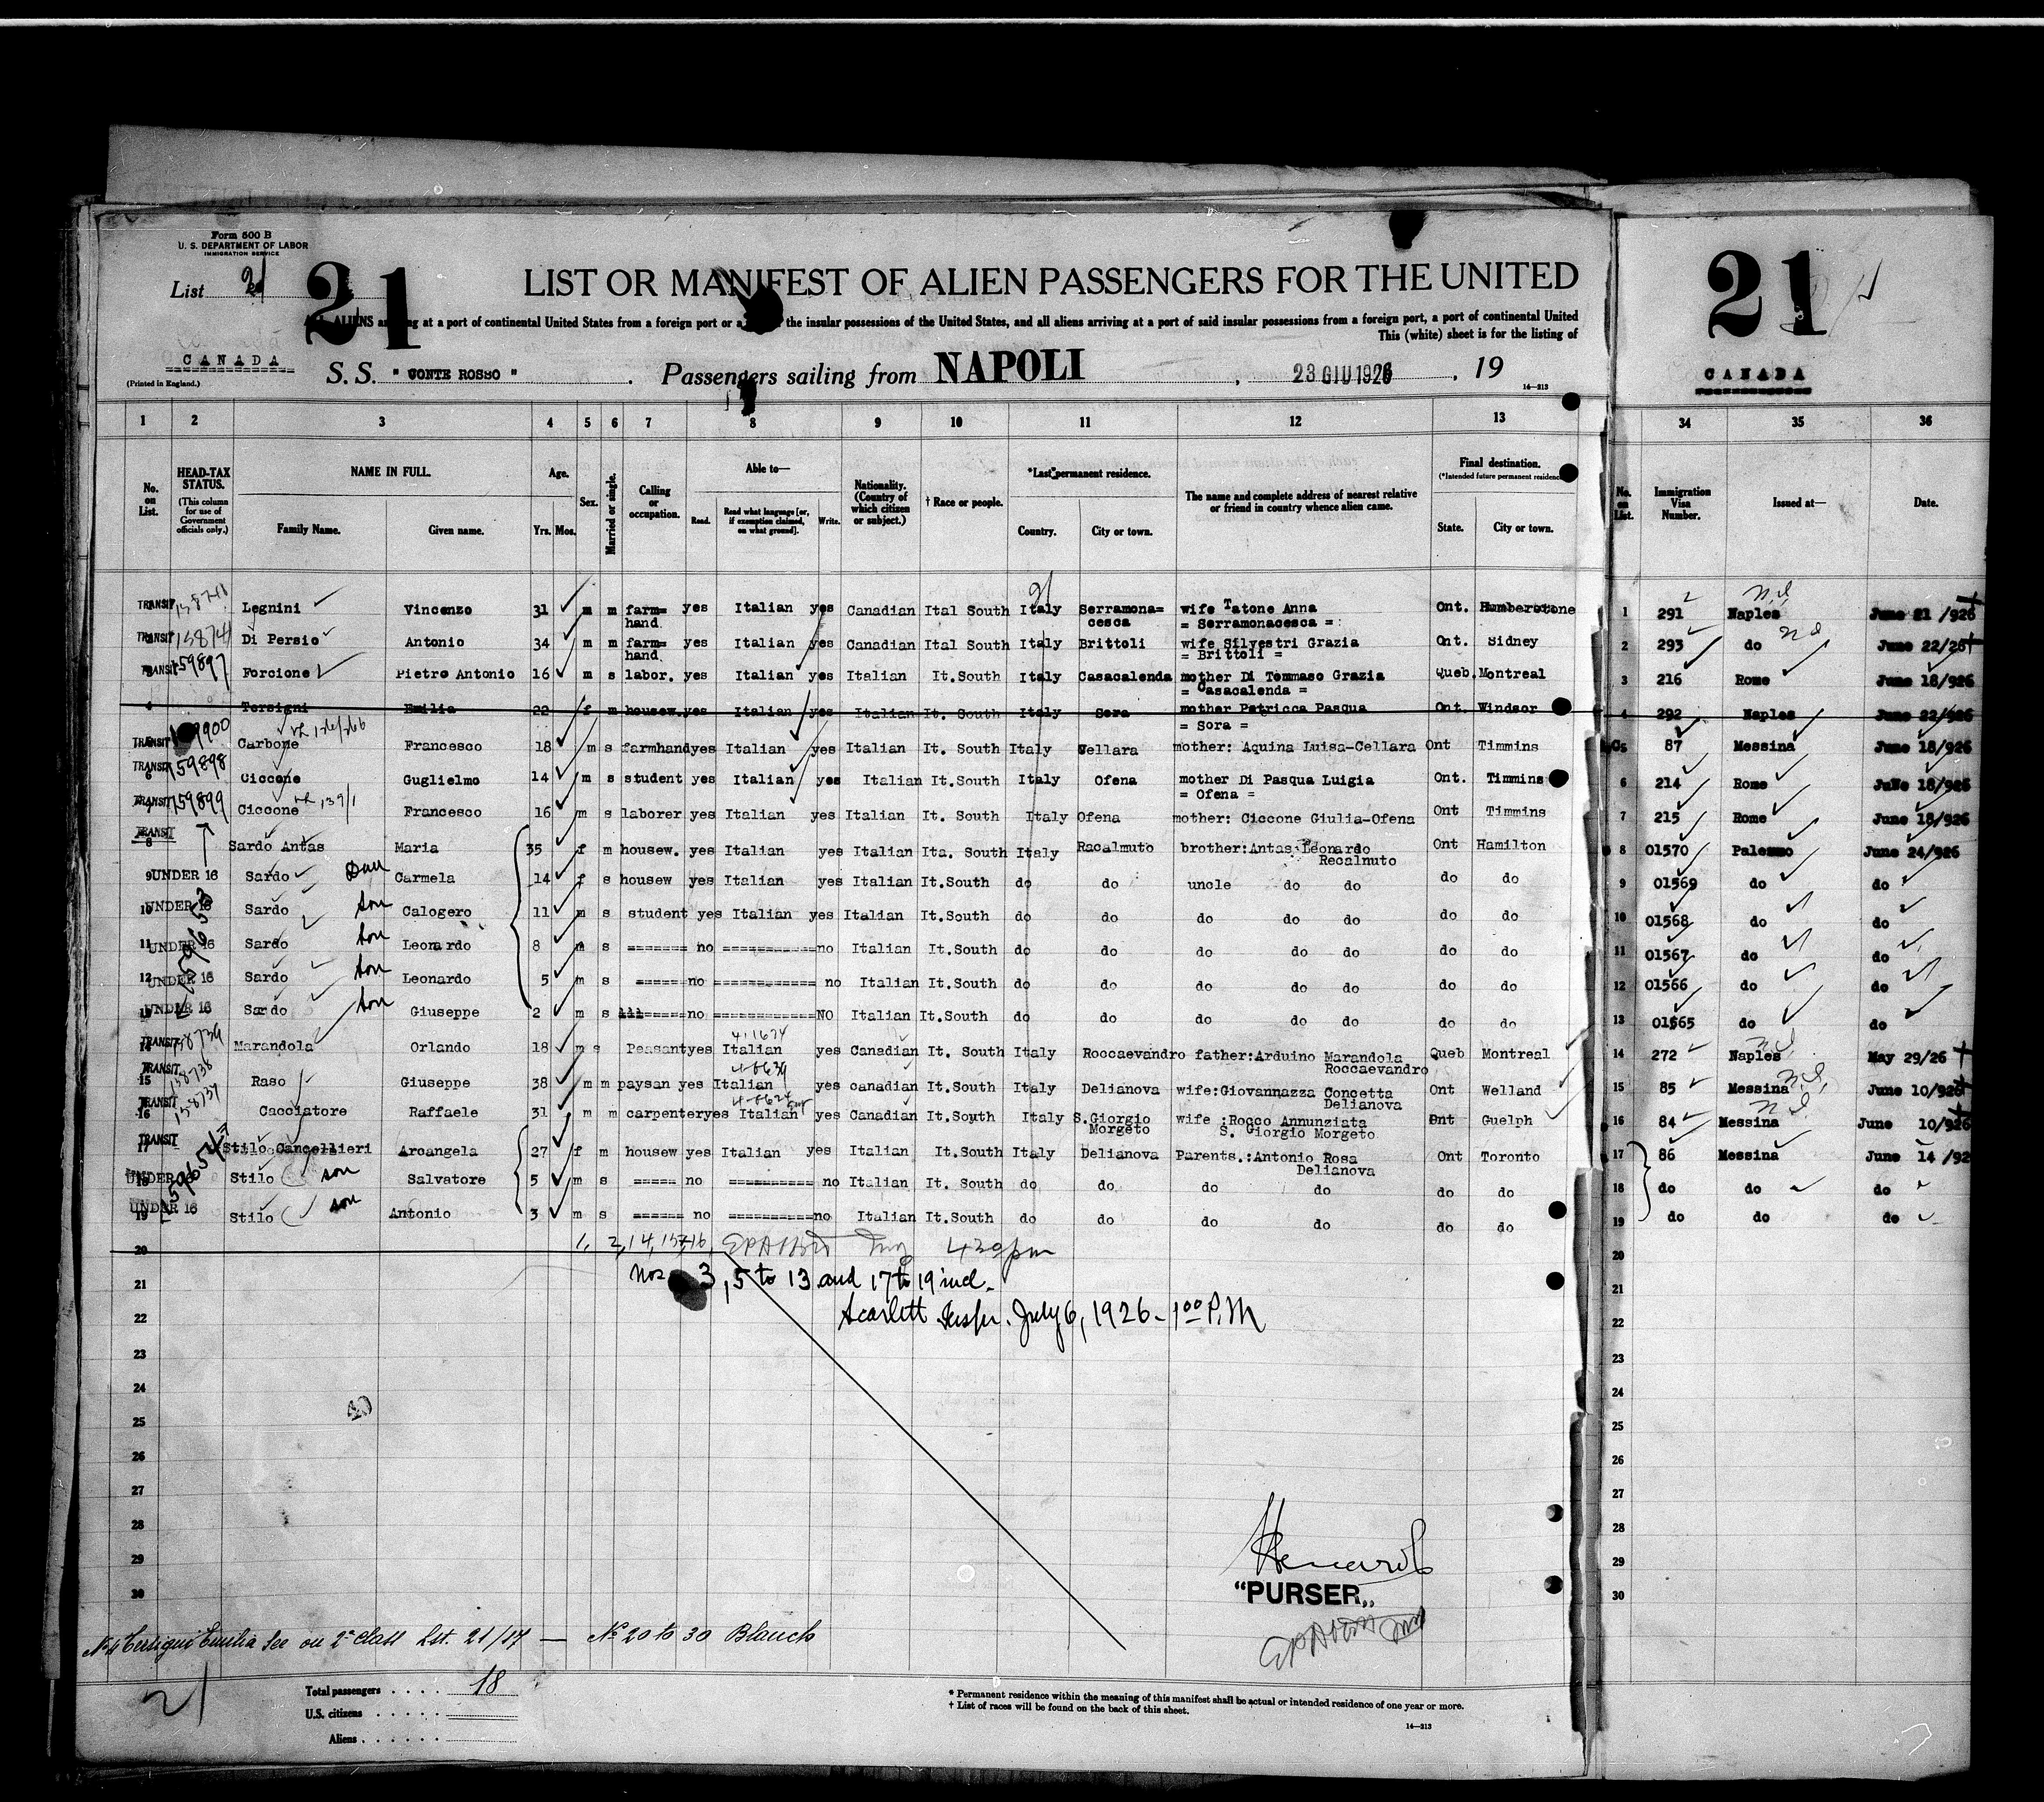 Form 500 B
U. S. DEPARTMENT OF LABOR
IMMIGRATION SERVICE
List 21
21
LIST OR MANIFEST OF ALIEN PASSENGERS FOR THE UNITED
ALIENS at a port of continental United States from a foreign port or a the insular possessions of the United States, and all aliens arriving at a port of said insular possessions from a foreign port, a port of continental United
This (white) sheet is for the listing of
CANADA
(Printed in England.)
S. S. " CONTE ROSSO " . Passengers sailing from NAPOLI , 23 GIU 1926 , 19
14—213
21
CANADA
1 2 3 4 5 6 7 8 9 10 11 12 13 34 35 36
No. on List.
HEAD-TAX STATUS.
(This column for use of Government officials only.)
NAME IN FULL.
Family Name. Given name.
Age.
Yrs. Mos.
Sex.
Married or single.
Calling or occupation.
Able to—
Read. Read what language [or, if exemption claimed, on what ground]. Write.
Nationality. (Country of which citizen or subject.)
† Race or people.
*Last permanent residence.
Country. City or town.
The name and complete address of nearest relative or friend in country whence alien came.
Final destination.
(*Intended future permanent residence
State. City or town.
No. on List.
Immigration Visa Number.
Issued at—
Date.
TRANSIT Legnini Vincenzo 31 m m farm= hand yes Italian yes Canadian Ital South Italy Serramona= cesca wife Tatone Anna = Serramonacesca = Ont. Humberstone 1 291 Naples June 21 /926
TRANSIT Di Persio Antonio 34 m m farm= hand yes Italian yes Canadian Ital South Italy Brittoli wife Silvestri Grazia = Brittoli = Ont. Sidney 2 293 do June 22/26
TRANSIT 159897 Forcione Pietro Antonio 16 m s labor. yes Italian yes Italian It.South Italy Casacalenda mother Di Tommaso Grazia = Casacalenda = Queb. Montreal 3 216 Rome June 18/926
4 Tersigni Emilia 22 f m housew. yes Italian yes Italian It. South Italy Sora mother Petricca Pasqua = Sora = Ont. Windsor 4 292 Naples June 22/926
TRANSIT Carbone Francesco 18 m s farmhand yes Italian yes Italian It. South Italy Cellara mother: Aquina Luisa-Cellara Ont Timmins 5 87 Messina June 18/926
TRANSIT 6 159898 Ciccone Guglielmo 14 m s student yes Italian yes Italian It.South Italy Ofena mother Di Pasqua Luigia = Ofena = Ont. Timmins 6 214 Rome June 18/926
TRANSIT 7 159899 Ciccone Francesco 16 m s laborer yes Italian yes Italian It. South Italy Ofena mother: Ciccone Giulia-Ofena Ont Timmins 7 215 Rome June 18/926
TRANSIT 8 Sardo Antas Maria 35 f m housew. yes Italian yes Italian Ita. South Italy Racalmuto brother:Antas Leonardo Recalmuto Ont Hamilton 8 01570 Palermo June 24/926
9 UNDER 16 Sardo Carmela 14 f s housew yes Italian yes Italian It.South do do uncle do do do do 9 01569 do do
10 UNDER 16 Sardo son Calogero 11 m s student yes Italian yes Italian It.South do do do do do do do 10 01568 do do
11 UNDER 16 Sardo son Leonardo 8 m s ======= no =========== no Italian It.South do do do do do do do 11 01567 do do
12 UNDER 16 Sardo son Leonardo 5 m s ====== no ============ no Italian It.South do do do do do do do 12 01566 do do
13 UNDER 16 Sardo son Giuseppe 2 m s ====== no ============ NO Italian It.South do do do do do do do 13 01565 do do
TRANSIT 14 158739 Marandola Orlando 18 m s Peasant yes Italian yes Canadian It. South Italy Roccaevandro father:Arduino Marandola Roccaevandro Queb Montreal 14 272 Naples May 29/26
TRANSIT 15 158738 Raso Giuseppe 38 m m paysan yes Italian yes canadian It.South Italy Delianova wife:Giovannazza Concetta Delianova Ont Welland 15 85 Messina June 10/926
TRANSIT 16 158737 Cacciatore Raffaele 31 m m carpenter yes Italian yes Canadian It.South Italy S.Giorgio Morgeto wife :Rocco Annunziata S. Giorgio Morgeto Ont Guelph 16 84 Messina June 10/926
TRANSIT 17 Stilo Cancellieri Arcangela 27 f m housew yes Italian yes Italian It.South Italy Delianova Parents.:Antonio Rosa Delianova Ont Toronto 17 86 Messina June 14 /92
UNDER 16 18 Stilo son Salvatore 5 m s ===== no ========== no Italian It. South do do do do do do 18 do do do
UNDER 16 19 Stilo son Antonio 3 m s ====== no ========== no Italian It.South do do do do do do 19 do do do
20 1, 2, 14, 15 + 16 430 pm 20
21 Nos 3, 5 to 13 and 17 to 19 incl. 21
22 Scarlett Inspr. July 6, 1926 - 1 00 P.M 22
23 23
24 24
25 25
26 26
27 27
28 28
29 29
30 30
"PURSER„
No 4 Tersigni Emilia See on 2a Class Lst. 21/17 — No 20 to 30 Blanch
21
Total passengers . . . . 18
U.S. citizens . . . . .
Aliens . . . . . .
* Permanent residence within the meaning of this manifest shall be actual or intended residence of one year or more.
† List of races will be found on the back of this sheet.
14—213